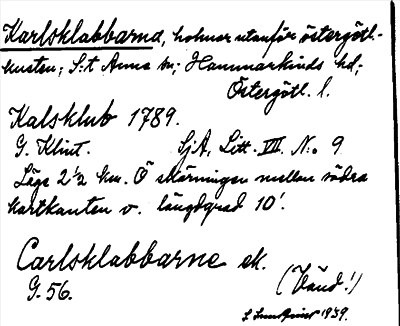 Karlsklabbarna, holmar utanför östergötl.-
kusten; S:t Anna sn; Hammarkinds hd;
Östergötl. l.
Kalsklub 1789.
G. Klint. SjA, Litt. VIII. N:o 9
Läge 2 1/2 km. Ö skärningen mellan södra
kartkanten o. längdgrad 10'.
Carlsklabbarne ek.
G. 56. (Vänd!)
1939.